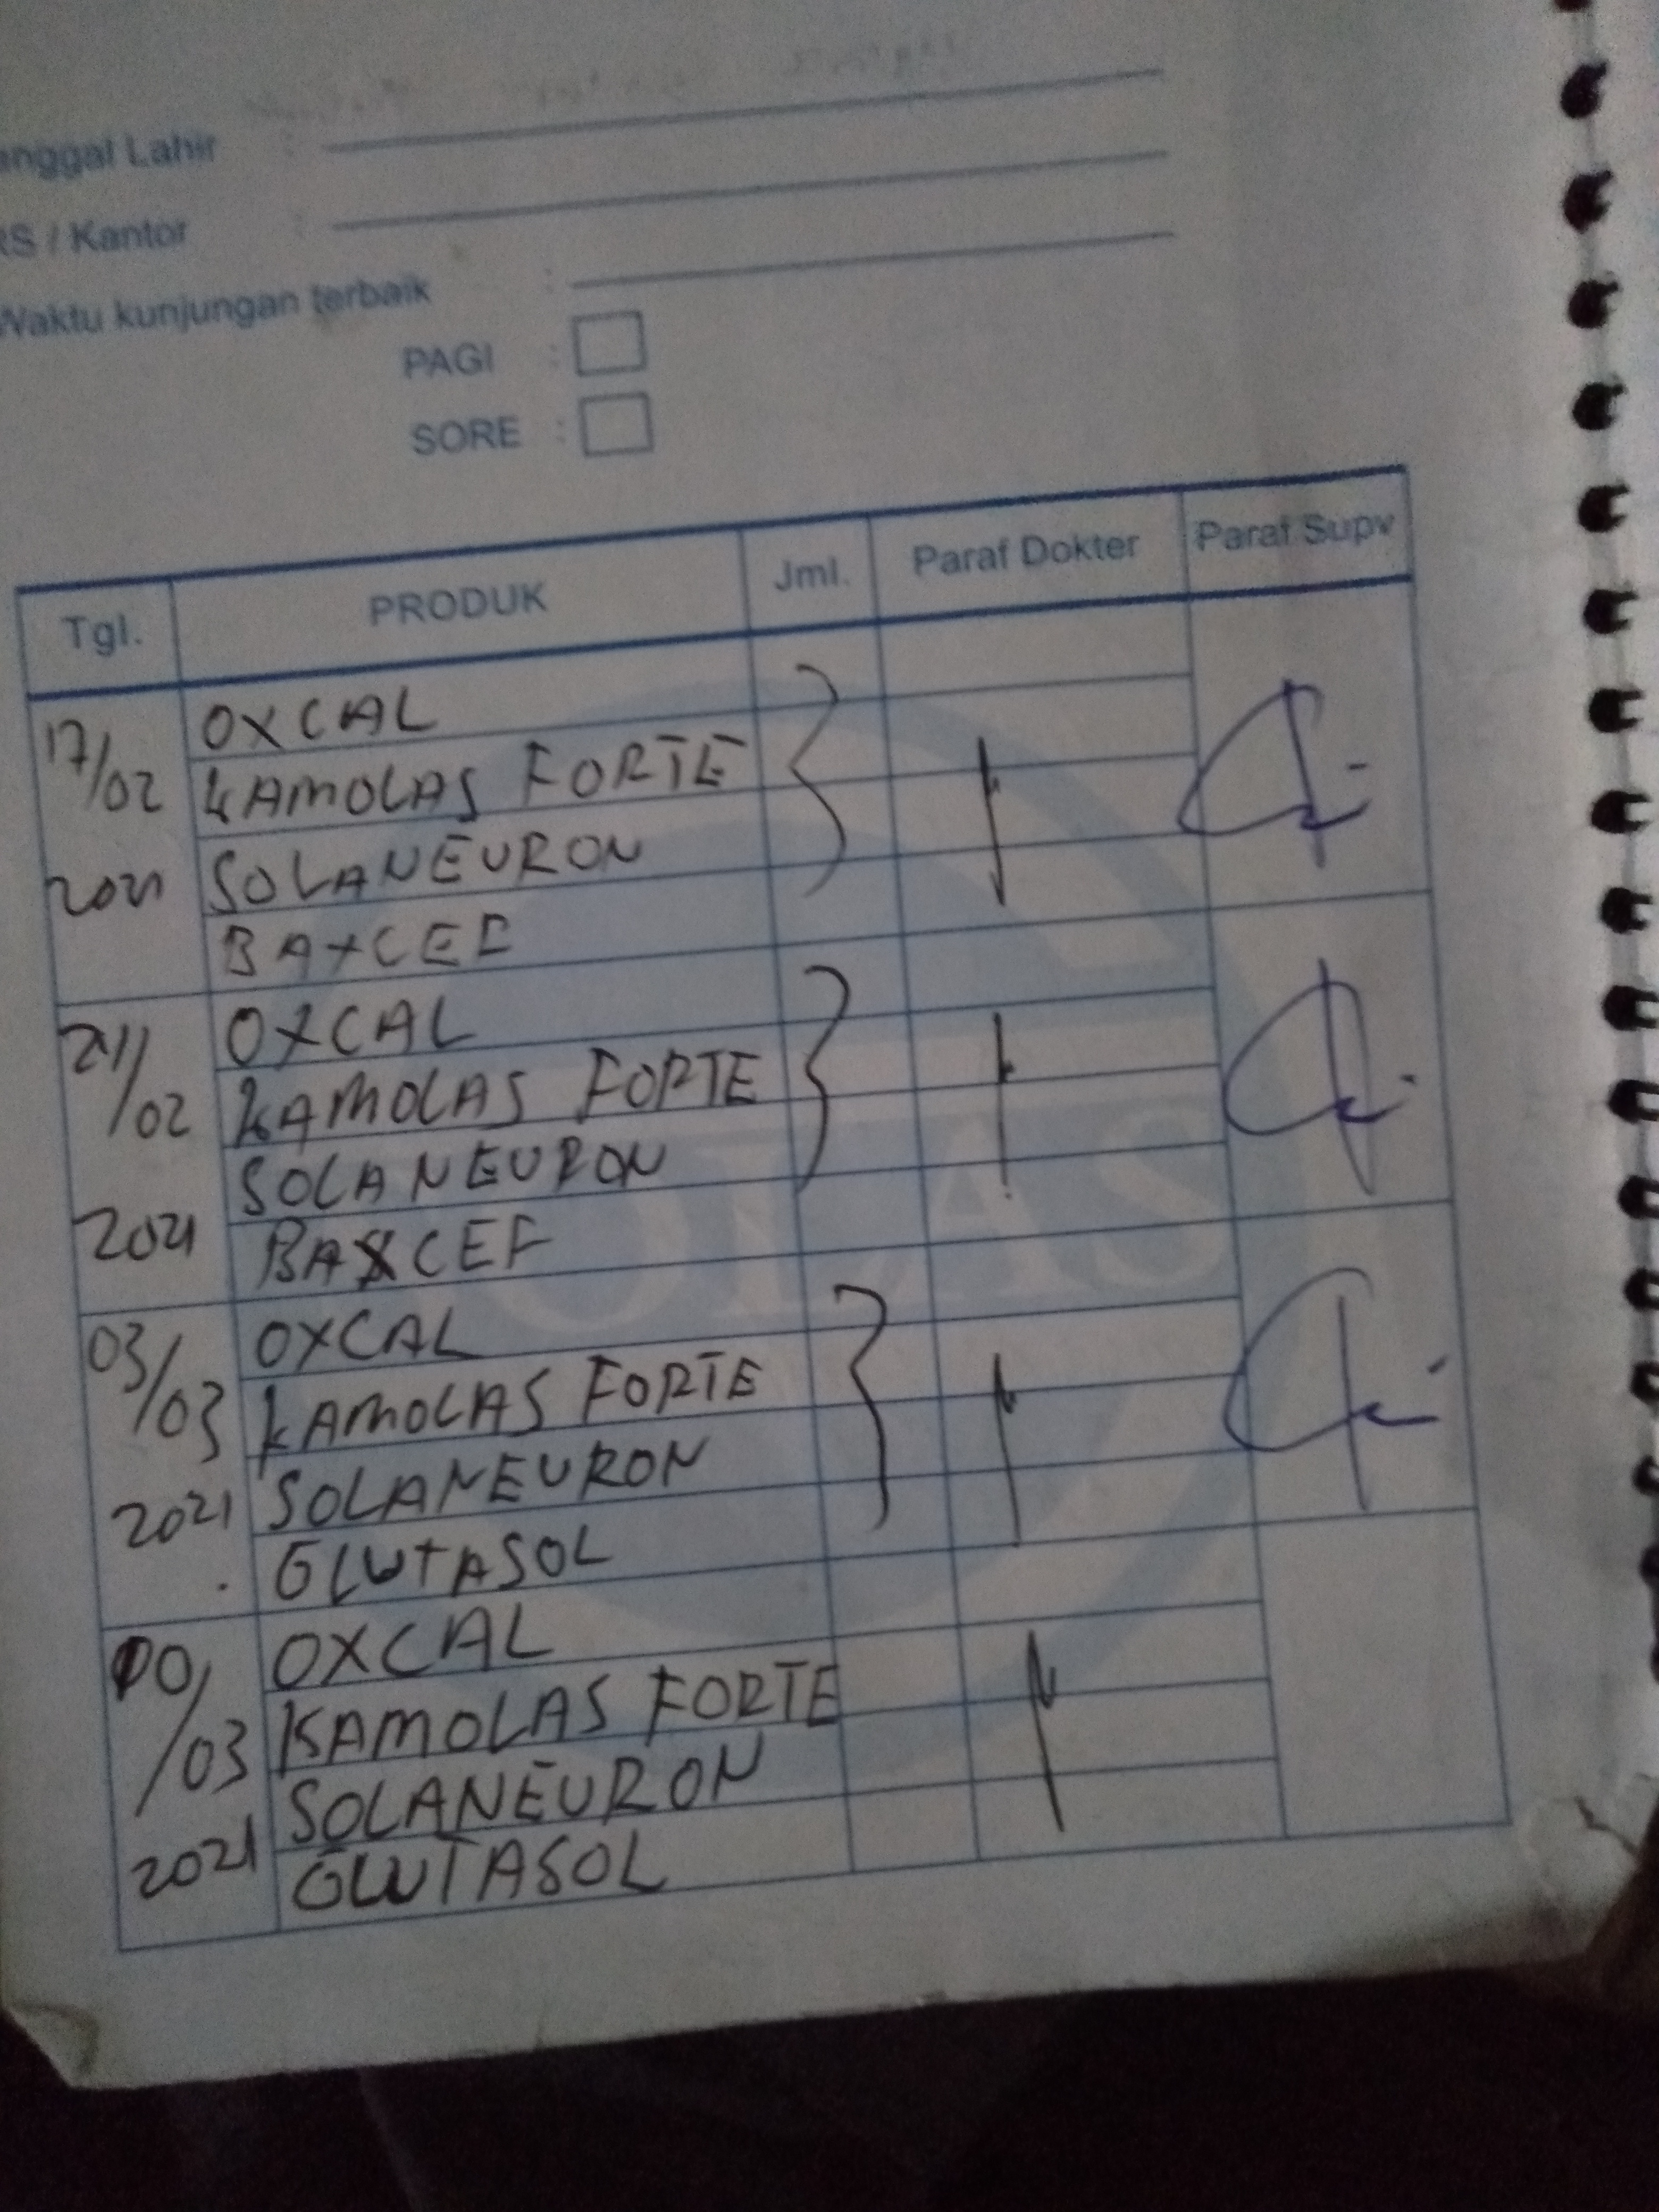 anggal Lahir :
RS / Kantor :
Waktu kunjungan terbaik :
PAGI :
SORE :
Tgl. PRODUK Jml. Paraf Dokter Paraf Supv
17/02 2021 OXCAL
KAMOLAS FORTE
SOLANEURON
BAXCEF
24/02 2021 OXCAL
KAMOLAS FORTE
SOLANEURON
BAXCEF
03/03 2021 OXCAL
KAMOLAS FORTE
SOLANEURON
GLUTASOL
10/03 2021 OXCAL
KAMOLAS FORTE
SOLANEURON
GLUTASOL
OLAS